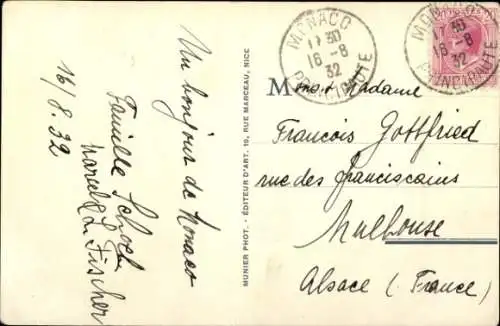 Un bonjour de Monaco
Famille Schoel
Marcel & L. Fischer
16/8.32
MUNIER PHOT. - ÉDITEUR D'ART. 10, RUE MARCEAU, NICE
MONACO
17 30
16 - 8
32
PRINCIPAUTÉ
MONACO
17 30
16 - 8
32
PRINCIPAUTÉ
Mons. et Madame
Francois Gottfried
rue des franciscains
Mulhouse
Alsace (France)